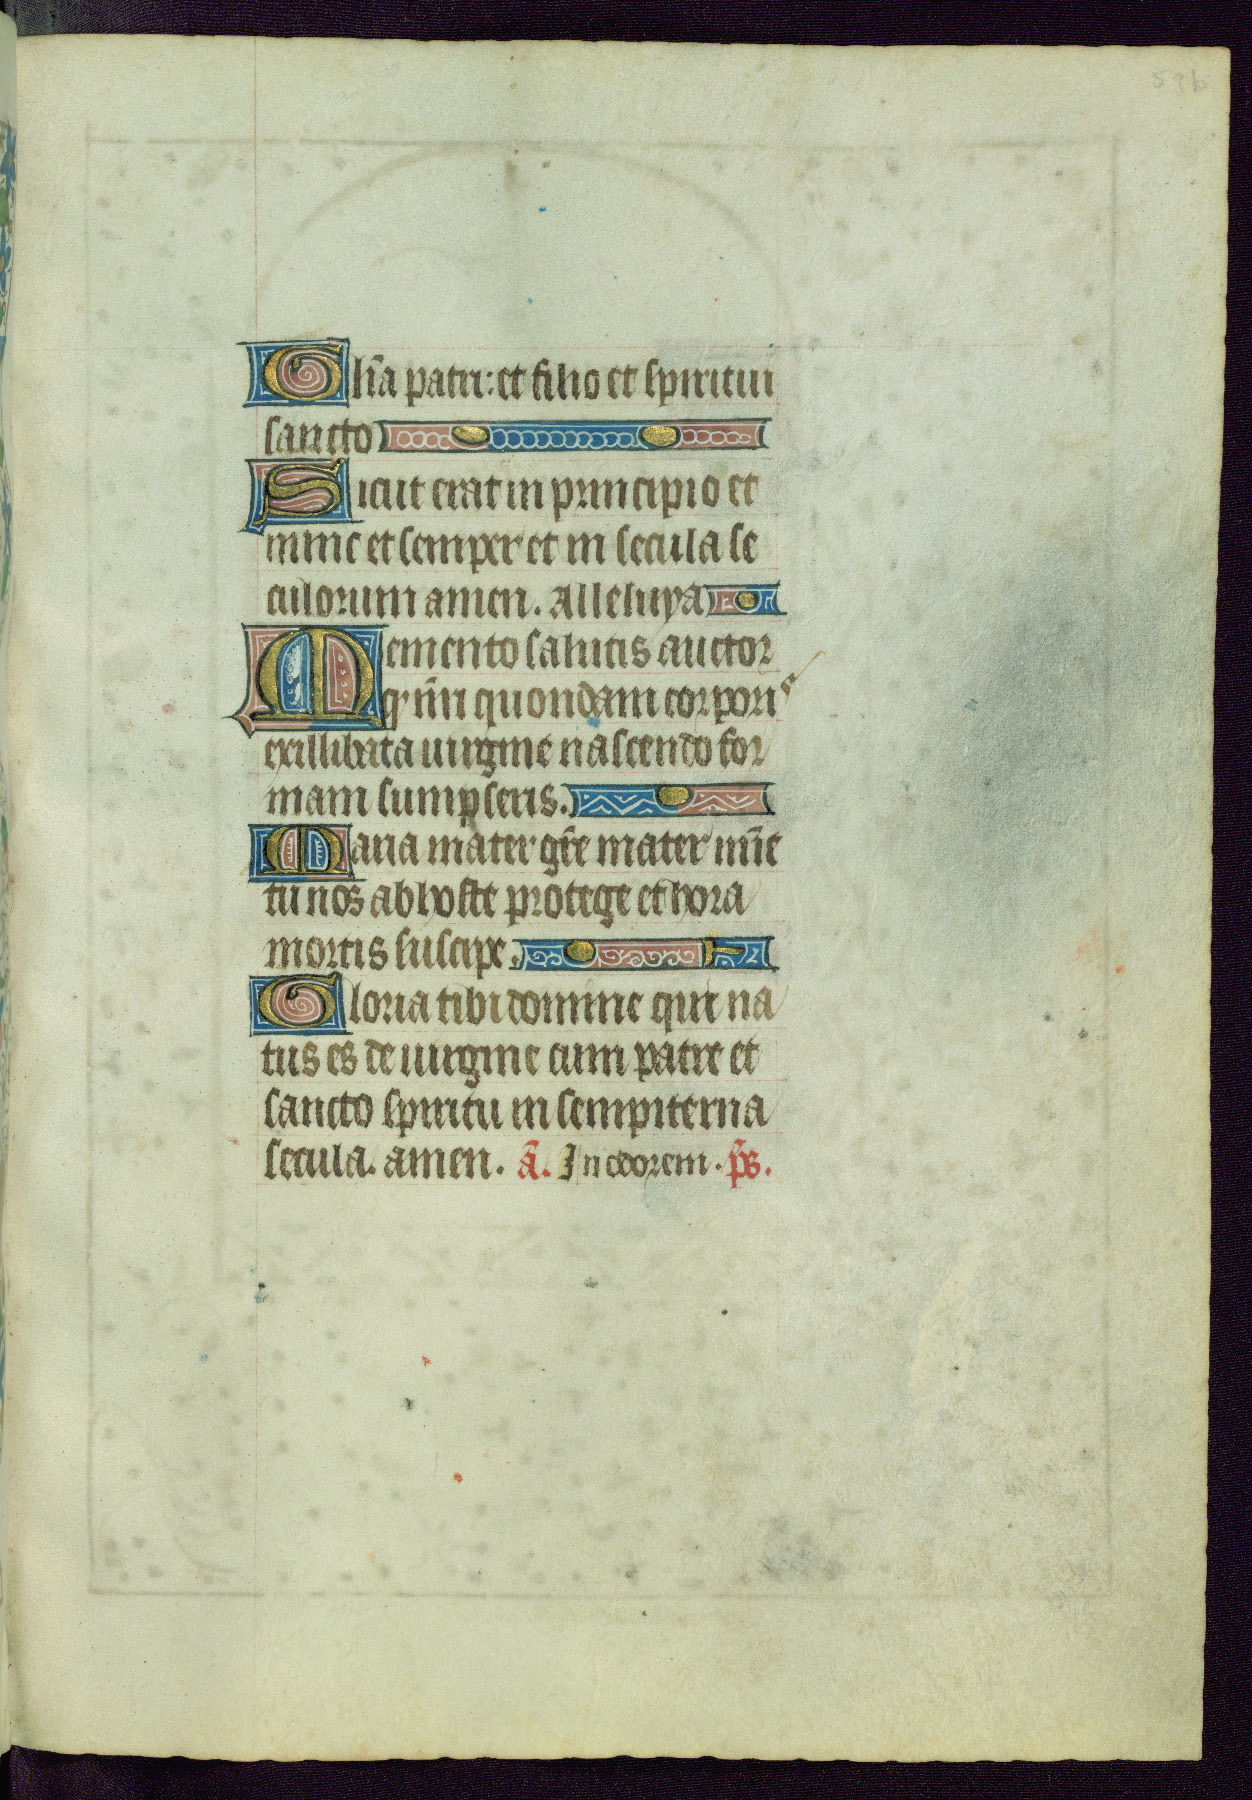 Gl̄ia patri: et filio et spiritui
sancto
Sicut erat in principio et
nunc et semper et in secula se
culorum amen. Alleluya
Memento salutis auctor
qꝰ nr̄i quondam corporis
exillibata uirgine nascendo for
mam sumpseris.
Maria mater gr̄e mater mīe
tu nos ab hoste protege et hora
mortis suscipe.
Gloria tibi domine qui na
tus es de uirgine cum patre et
sancto spiritu in sempiterna
secula. amen. ā. In odorem. p̄s.